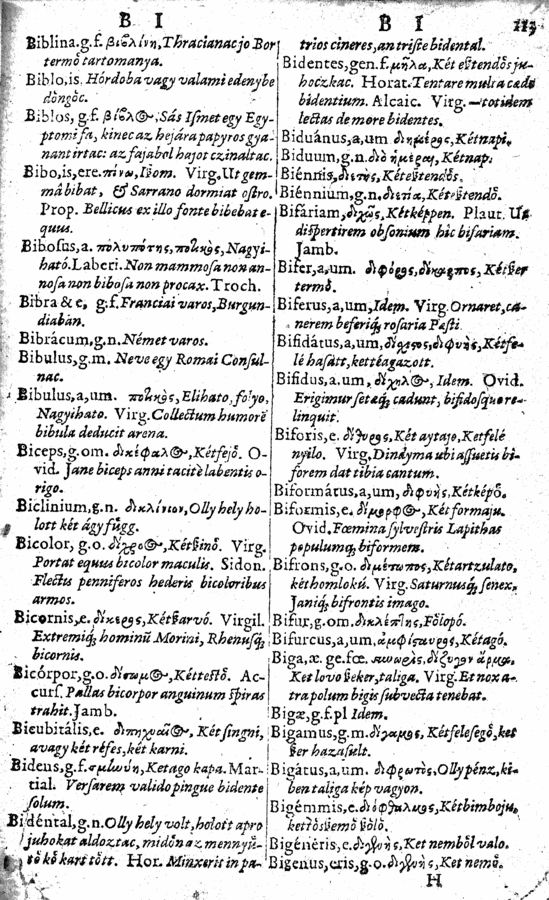 B I
B I 113
Biblina.g.f. βιβλίνη, Thracianac jo Bor
termő tartomanya.
Biblo,is. Hórdoba vagy valami edenybe
dôngôc.
Biblos, g.f. βίβλος, Sás Ismet egy Egy-
ptomi fa, kinec az hejára papyros gya-
nant irtac: az fajabol hajot czinaltac.
Bibo,is,ere. πίνω, Iszom. Virg. Ut gem-
mâ bibat, & Sarrano dormiat ostro.
Prop. Bellicus ex illo fonte bibebat e-
quus.
Bibosus,a. πολυπότης, ποτικὸς, Nagyi-
ható. Laberi. Non mammosa non an-
nosa non bibosa non procax. Troch.
Bibra & e, g.f. Franciai varos, Burgun-
diaban.
Bibrácum, g.n. Német varos.
Bibulus, g.m. Neve egy Romai Consul-
nac.
Bibulus,a,um. ποτικὸς, Elihato, folyo,
Nagyihato. Virg. Collectum humorē
bibula deducit arena.
Biceps, g.om. δικέφαλος, Kétfejô. O-
vid. Jane biceps anni tacitè labentis o-
rigo.
Biclinium, g.n. δικλίνιον, Olly hely ho-
lott két ágy függ.
Bicolor, g.o. δίχροος, Kétszinô. Virg.
Portat equus bicolor maculis. Sidon.
Flectus penniferos hederis bicoloribus
armos.
Bicornis,e. δίκερως, Kétszarvó. Virgil.
Extremiq; hominū Morini, Rhenusq;
bicornis.
Bicórpor, g.o. δίσωμος, Kéttestô. Ac-
curs. Pallas bicorpor anguinum spiras
trahit. Jamb.
Bicubitális,e. διπηχυαῖος, Két singni,
avagy két réfes, két karni.
Bidens, g.f. σμινύη, Ketago kapa. Mar-
tial. Versarem valido pingue bidente
solum.
Bidéntal, g.n. Olly hely volt, holott apro
juhokat aldoztac, midôn az mennyü-
tô kô kart tôtt. Hor. Minxerit in pa-
trios cineres, an triste bidental.
Bidentes, gen.f. μῆλα, Két esztendôs ju-
hoczkac. Horat. Tentare multa cæde
bidentium. Alcaic. Virg. —totidem
lectas de more bidentes.
Biduánus,a,um διημέρος, Kétnapi.
Biduum, g.n. διὸ ἡμέραι, Kétnap.
Biénnis, διετὴς, Kétesztendôs.
Biénnium, g.n. διετία, Kétesztendô.
Bifáriam, διχῶς, Kétképpen. Plaut. Ut
dispertirem obsonium hic bifariam.
Jamb.
Bifer,a,um. διφόρος, δίκαρπος, Kétszer
termô.
Biferus,a,um, Idem. Virg. Ornaret, ca-
nerem biferiq; rosaria Pæsti
Bifidátus,a,um, δίχιτος, διφυὴς, Kétfe-
lé hasátt, kettéagazott.
Bifidus,a.um, δίχηλος, Idem. Ovid.
Erigimur setæq; cadunt, bifidosque re-
linquit.
Biforis,e. δίθυρος, Két aytajo, Ketfelé
nyilo. Virg. Dindyma ubi assuetis bi-
forem dat tibia cantum.
Biformátus,a,um, διφυὴς, Kétképô.
Biformis,e. δίμορφος, Két formaju.
Ovid. Fœmina sylvestris Lapithas
populumq; biformem.
Bifrons, g.o. διμέτωπος, Kétartzulato,
két homlokú. Virg. Saturnusq; senex,
Janiq; bifrontis imago.
Bifur, g.om. δικλέπτης, Fôlopó.
Bifurcus,a,um, ἀμφίσαυρος, Kétagó.
Biga,æ. ge.fœ. συνωρὶς, δίζυγον ἅρμα.
Ket lovo szeker, taliga. Virg. Et nox a-
tra polum bigis subvecta tenebat.
Bigæ, g.f.pl Idem.
Bigamus, g.m. δίγαμος, Két feleségô, ket
szer hazasult.
Bigátus,a,um. διφρωτὸς, Olly pénz, ki-
ben taliga kép vagyon.
Bigémmis,e. διόφθαλμος, Kétbimboju,
kettôs szemô szôlô.
Bigéneris,e. διγενὴς, Ket nembôl valo.
Bigenus,eris, g.o. διγενὴς, Ket nemô.
H